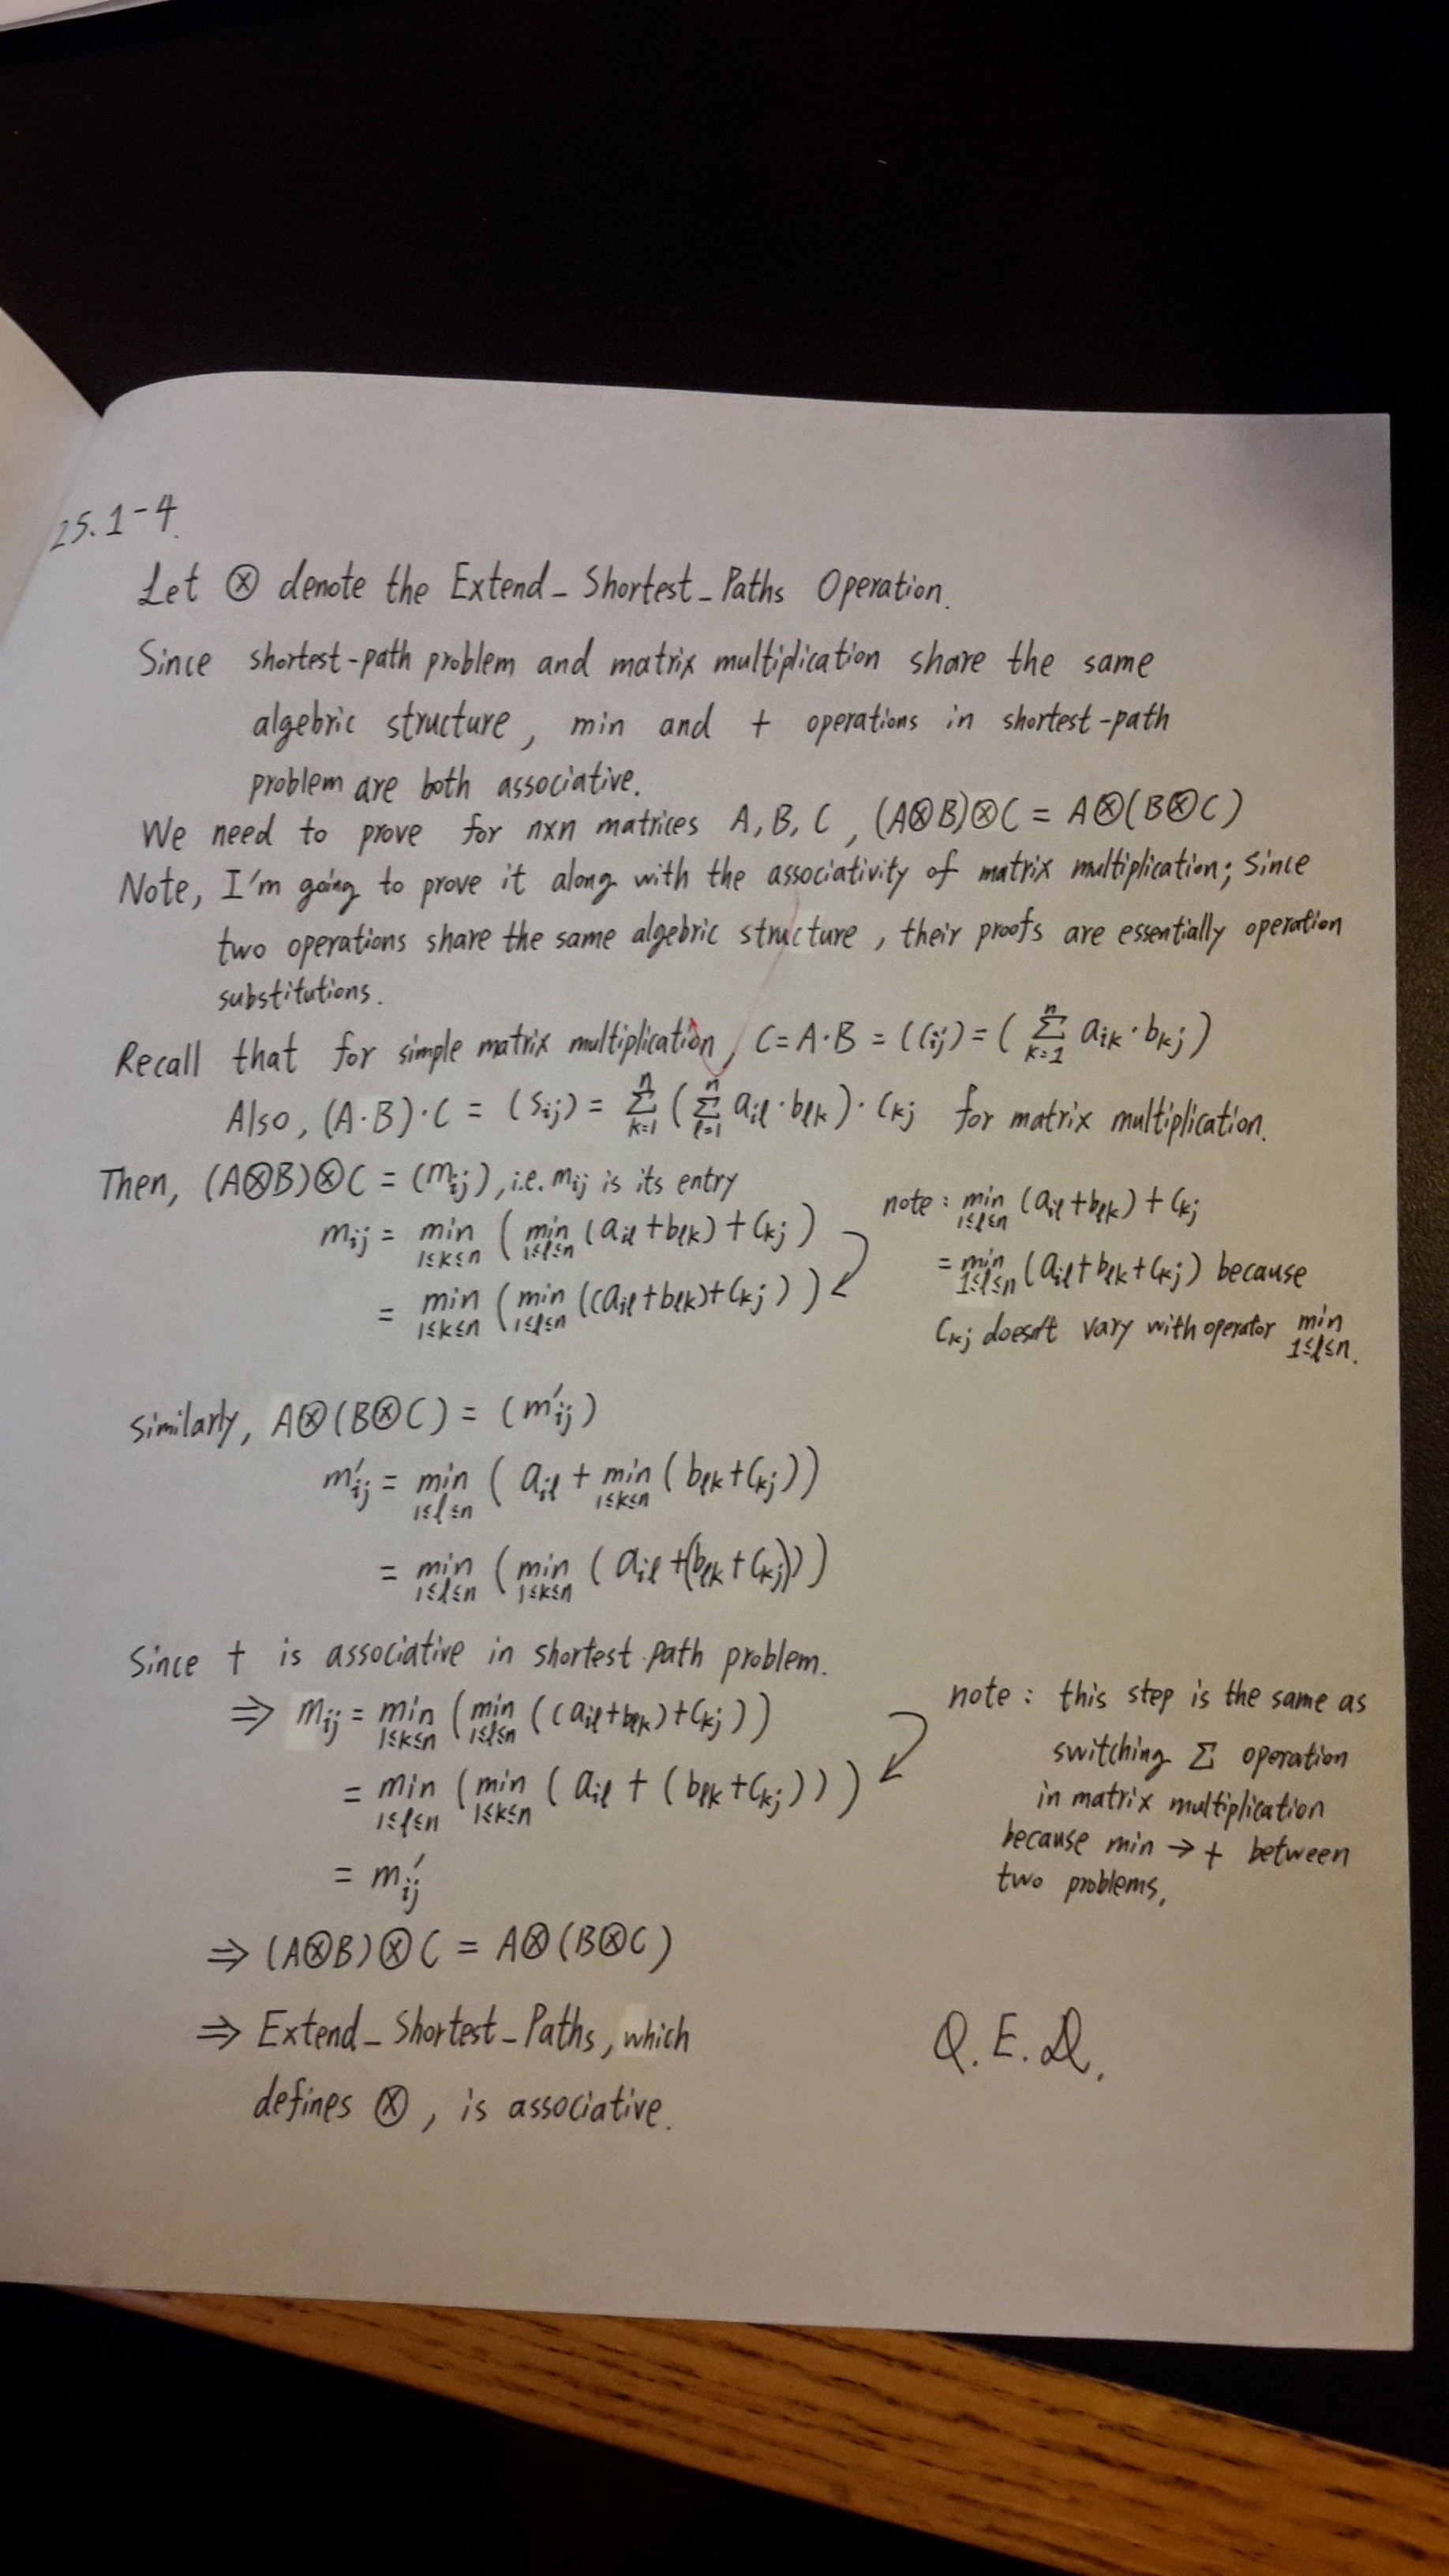 25.1-4.
Let ⊗ denote the Extend_Shortest_Paths Operation.
Since shortest-path problem and matrix multiplication share the same
algebric structure, min and + operations in shortest-path
problem are both associative.
We need to prove for n×n matrices A, B, C, (A⊗B)⊗C = A⊗(B⊗C)
Note, I'm going to prove it along with the associativity of matrix multiplication; since
two operations share the same algebric structure, their proofs are essentially operation
substitutions.
Recall that for simple matrix multiplication, C=A·B = (Cij) = ( Σ_{k=1}^{n} aik·bkj )
Also, (A·B)·C = (Sij) = Σ_{k=1}^{n} ( Σ_{l=1}^{n} ail·blk )·Ckj for matrix multiplication.
Then, (A⊗B)⊗C = (mij), i.e. mij is its entry
mij = min_{1≤k≤n} ( min_{1≤l≤n} (ail+blk) + Ckj )
= min_{1≤k≤n} ( min_{1≤l≤n} ((ail+blk)+Ckj ) )
note: min_{1≤l≤n} (ail+blk) + Ckj
= min_{1≤l≤n} (ail+blk+Ckj) because
Ckj doesn't vary with operator min_{1≤l≤n}.
Similarly, A⊗(B⊗C) = (m'ij)
m'ij = min_{1≤l≤n} ( ail + min_{1≤k≤n} ( blk+Ckj ))
= min_{1≤l≤n} ( min_{1≤k≤n} ( ail +(blk+Ckj)))
Since + is associative in shortest path problem.
⇒ mij = min_{1≤k≤n} ( min_{1≤l≤n} ((ail+blk)+Ckj ))
= min_{1≤l≤n} ( min_{1≤k≤n} ( ail + (blk+Ckj)))
= m'ij
note: this step is the same as
switching Σ operation
in matrix multiplication
because min → + between
two problems.
⇒ (A⊗B)⊗C = A⊗(B⊗C)
⇒ Extend_Shortest_Paths, which
defines ⊗, is associative.
Q.E.D.